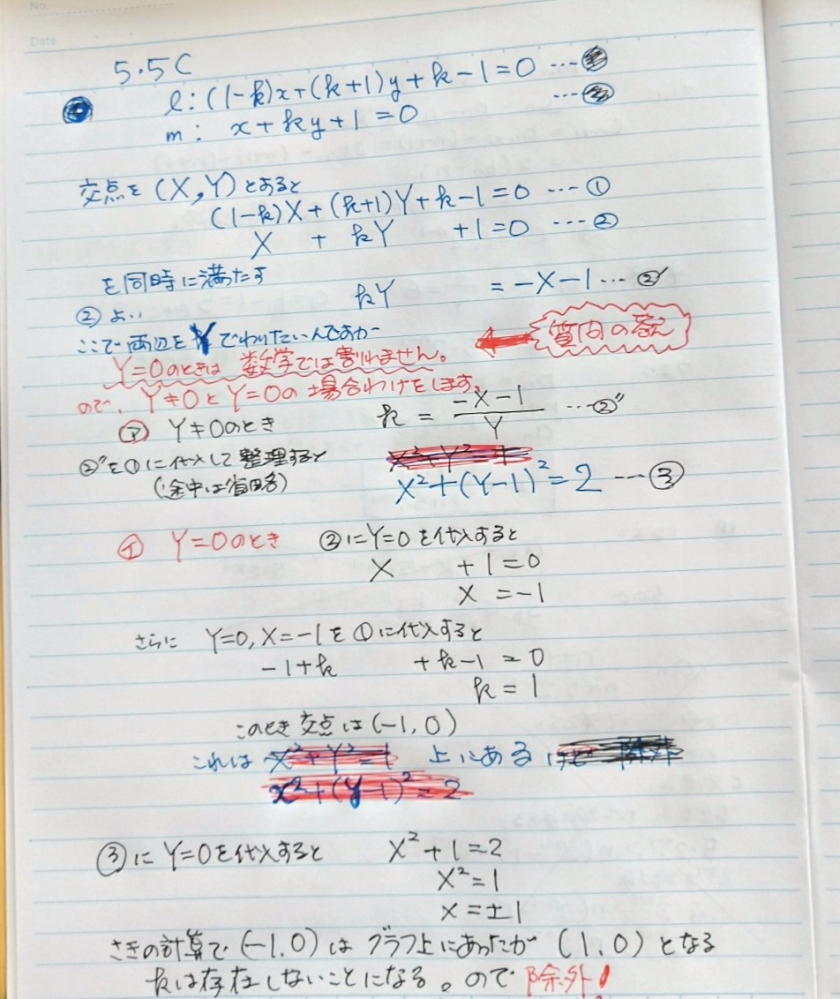 No.
Date
5.5C
l:(1-k)x+(k+1)y+k-1=0 ...
m: x+ky+1=0 ...
交点を(X,Y)とすると
(1-k)X+(k+1)Y+k-1=0 ...①
X + kY +1=0 ...②
を同時に満たす
②より kY =-X-1...②'
ここで両辺をYでわりたいんですが 質問の答え
Y=0のときは 数学では割れません。
ので、Y≠0とY=0の場合わけをします。
㋐ Y≠0のとき k=(-X-1)/Y ...②''
②''を①に代入して整理すると
(途中は省略) X²+(Y-1)²=2 ...③
㋑ Y=0のとき ②にY=0を代入すると
X +1=0
X =-1
さらに Y=0,X=-1を①に代入すると
-1+k +k-1=0
k=1
このとき交点は(-1,0)
これは X²+Y²=1 上にある
x²+(y-1)²=2
③にY=0を代入すると X²+1=2
X²=1
X=±1
さきの計算で(-1,0)はグラフ上にあったが(1,0)となる
kは存在しないことになる。ので除外!